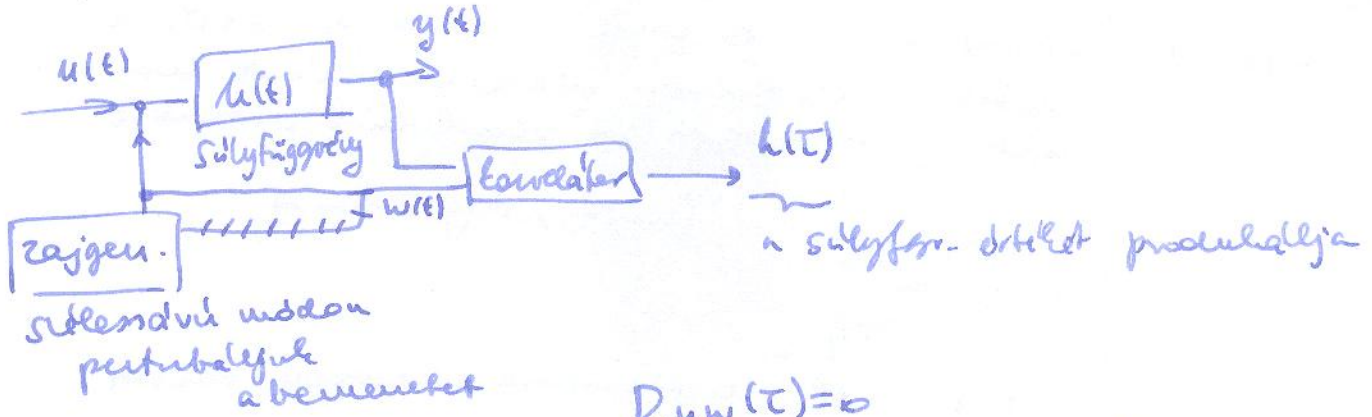 u(t)
h(t)
y(t)
súlyfüggvény
korrelátor
h(τ)
w(t)
zajgen.
a súlyfgv. értékét produkálja
szélessávú módon
perturbáljuk
a bemenetet
R_uw(τ)=0